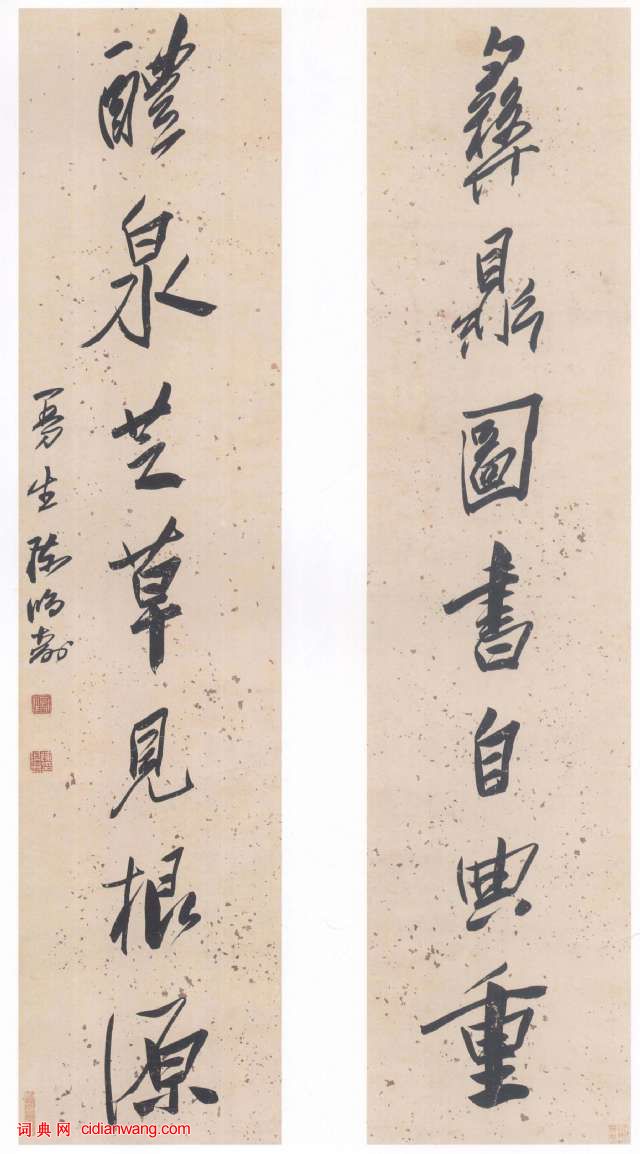 彝鼎圖書自典重
醴泉芝草見根源
曼生陳鴻壽
词典网 cidianwang.com